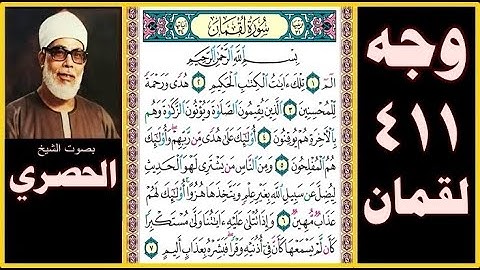 وجه
٤١١
لقمان
سُورَةُ لُقْمَانَ
بِسْمِ اللَّهِ الرَّحْمَٰنِ الرَّحِيمِ
الٓمٓ ١ تِلْكَ ءَايَٰتُ ٱلْكِتَٰبِ ٱلْحَكِيمِ ٢ هُدًى وَرَحْمَةً
لِّلْمُحْسِنِينَ ٣ ٱلَّذِينَ يُقِيمُونَ ٱلصَّلَوٰةَ وَيُؤْتُونَ ٱلزَّكَوٰةَ وَهُم
بِٱلْءَاخِرَةِ هُمْ يُوقِنُونَ ٤ أُوْلَٰٓئِكَ عَلَىٰ هُدًى مِّن رَّبِّهِمْ وَأُوْلَٰٓئِكَ
هُمُ ٱلْمُفْلِحُونَ ٥ وَمِنَ ٱلنَّاسِ مَن يَشْتَرِى لَهْوَ ٱلْحَدِيثِ
لِيُضِلَّ عَن سَبِيلِ ٱللَّهِ بِغَيْرِ عِلْمٍ وَيَتَّخِذَهَا هُزُوًا أُوْلَٰٓئِكَ لَهُمْ
عَذَابٌ مُّهِينٌ ٦ وَإِذَا تُتْلَىٰ عَلَيْهِ ءَايَٰتُنَا وَلَّىٰ مُسْتَكْبِرًا
كَأَن لَّمْ يَسْمَعْهَا كَأَنَّ فِىٓ أُذُنَيْهِ وَقْرًا فَبَشِّرْهُ بِعَذَابٍ أَلِيمٍ ٧
بصوت الشيخ
الحصري